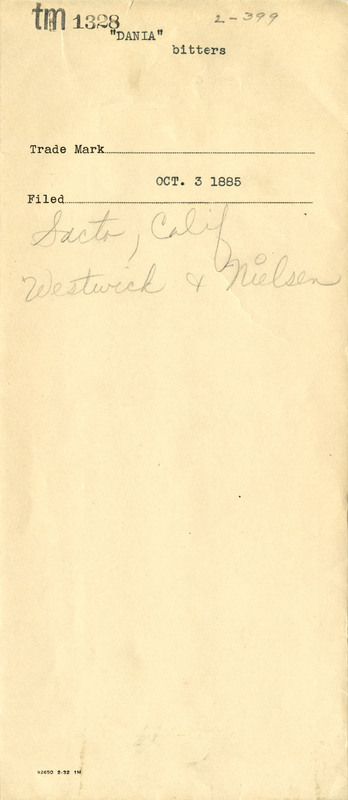 tm 1328 2-399
"DANIA"
bitters
Trade Mark
OCT. 3 1885
Filed
Sacto, Calif
Westwick & Nielsen
92650 2-32 1M